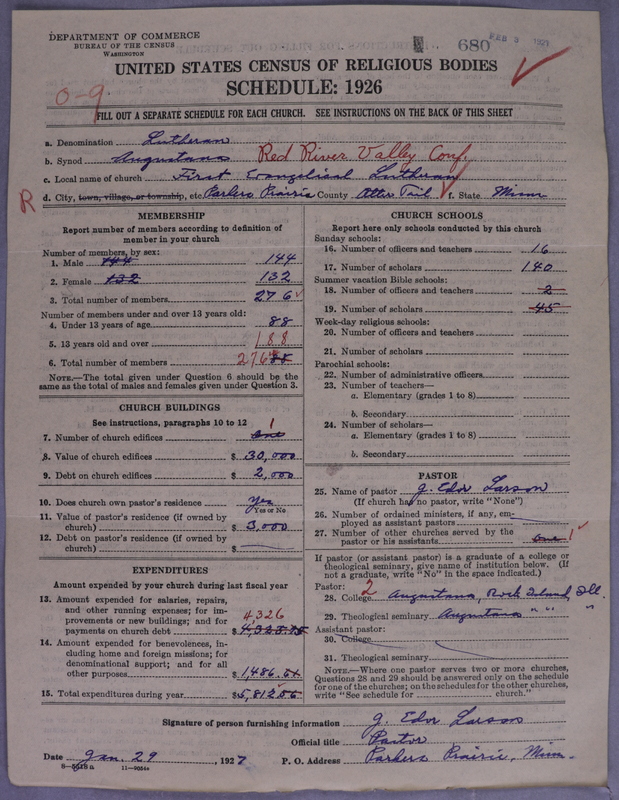 DEPARTMENT OF COMMERCE
BUREAU OF THE CENSUS
WASHINGTON
680
FEB 3 1927
UNITED STATES CENSUS OF RELIGIOUS BODIES
SCHEDULE: 1926
0-9
FILL OUT A SEPARATE SCHEDULE FOR EACH CHURCH. SEE INSTRUCTIONS ON THE BACK OF THIS SHEET
a. Denomination Lutheran
b. Synod Augustana Red River Valley Conf.
c. Local name of church First Evangelical Lutheran
R d. City, town, village, or township, etc Parkers Prairie County Otter Tail f. State Minn
MEMBERSHIP
Report number of members according to definition of member in your church
Number of members, by sex:
1. Male 144 144
2. Female 132 132
3. Total number of members 276
Number of members under and over 13 years old:
4. Under 13 years of age 88
5. 13 years old and over 188
6. Total number of members 276 88
NOTE.—The total given under Question 6 should be the same as the total of males and females given under Question 3.
CHURCH BUILDINGS
See instructions, paragraphs 10 to 12
7. Number of church edifices One 1
8. Value of church edifices $ 30,000
9. Debt on church edifices $ 2,000
10. Does church own pastor's residence Yes
Yes or No
11. Value of pastor's residence (if owned by church) $ 3,000
12. Debt on pastor's residence (if owned by church) $
EXPENDITURES
Amount expended by your church during last fiscal year
13. Amount expended for salaries, repairs, and other running expenses; for improvements or new buildings; and for payments on church debt $ 4,326
14. Amount expended for benevolences, including home and foreign missions; for denominational support; and for all other purposes $ 1,486.
15. Total expenditures during year $ 5,812
CHURCH SCHOOLS
Report here only schools conducted by this church
Sunday schools:
16. Number of officers and teachers 16
17. Number of scholars 140
Summer vacation Bible schools:
18. Number of officers and teachers 2
19. Number of scholars 45
Week-day religious schools:
20. Number of officers and teachers
21. Number of scholars
Parochial schools:
22. Number of administrative officers
23. Number of teachers—
a. Elementary (grades 1 to 8)
b. Secondary
24. Number of scholars—
a. Elementary (grades 1 to 8)
b. Secondary
PASTOR
25. Name of pastor G. Edor Larson
(If church has no pastor, write "None")
26. Number of ordained ministers, if any, employed as assistant pastors
27. Number of other churches served by the pastor or his assistants One 1
If pastor (or assistant pastor) is a graduate of a college or theological seminary, give name of institution below. (If not a graduate, write "No" in the space indicated.)
Pastor: 2
28. College Augustana, Rock Island, Ill.
29. Theological seminary Augustana " " "
Assistant pastor:
30. College
31. Theological seminary
NOTE.—Where one pastor serves two or more churches, Questions 28 and 29 should be answered only on the schedule for one of the churches; on the schedules for the other churches, write "See schedule for ........ church."
Signature of person furnishing information G. Edor Larson
Official title Pastor
Date Jan. 29, 1927 P. O. Address Parkers Prairie, Minn.
11—9054